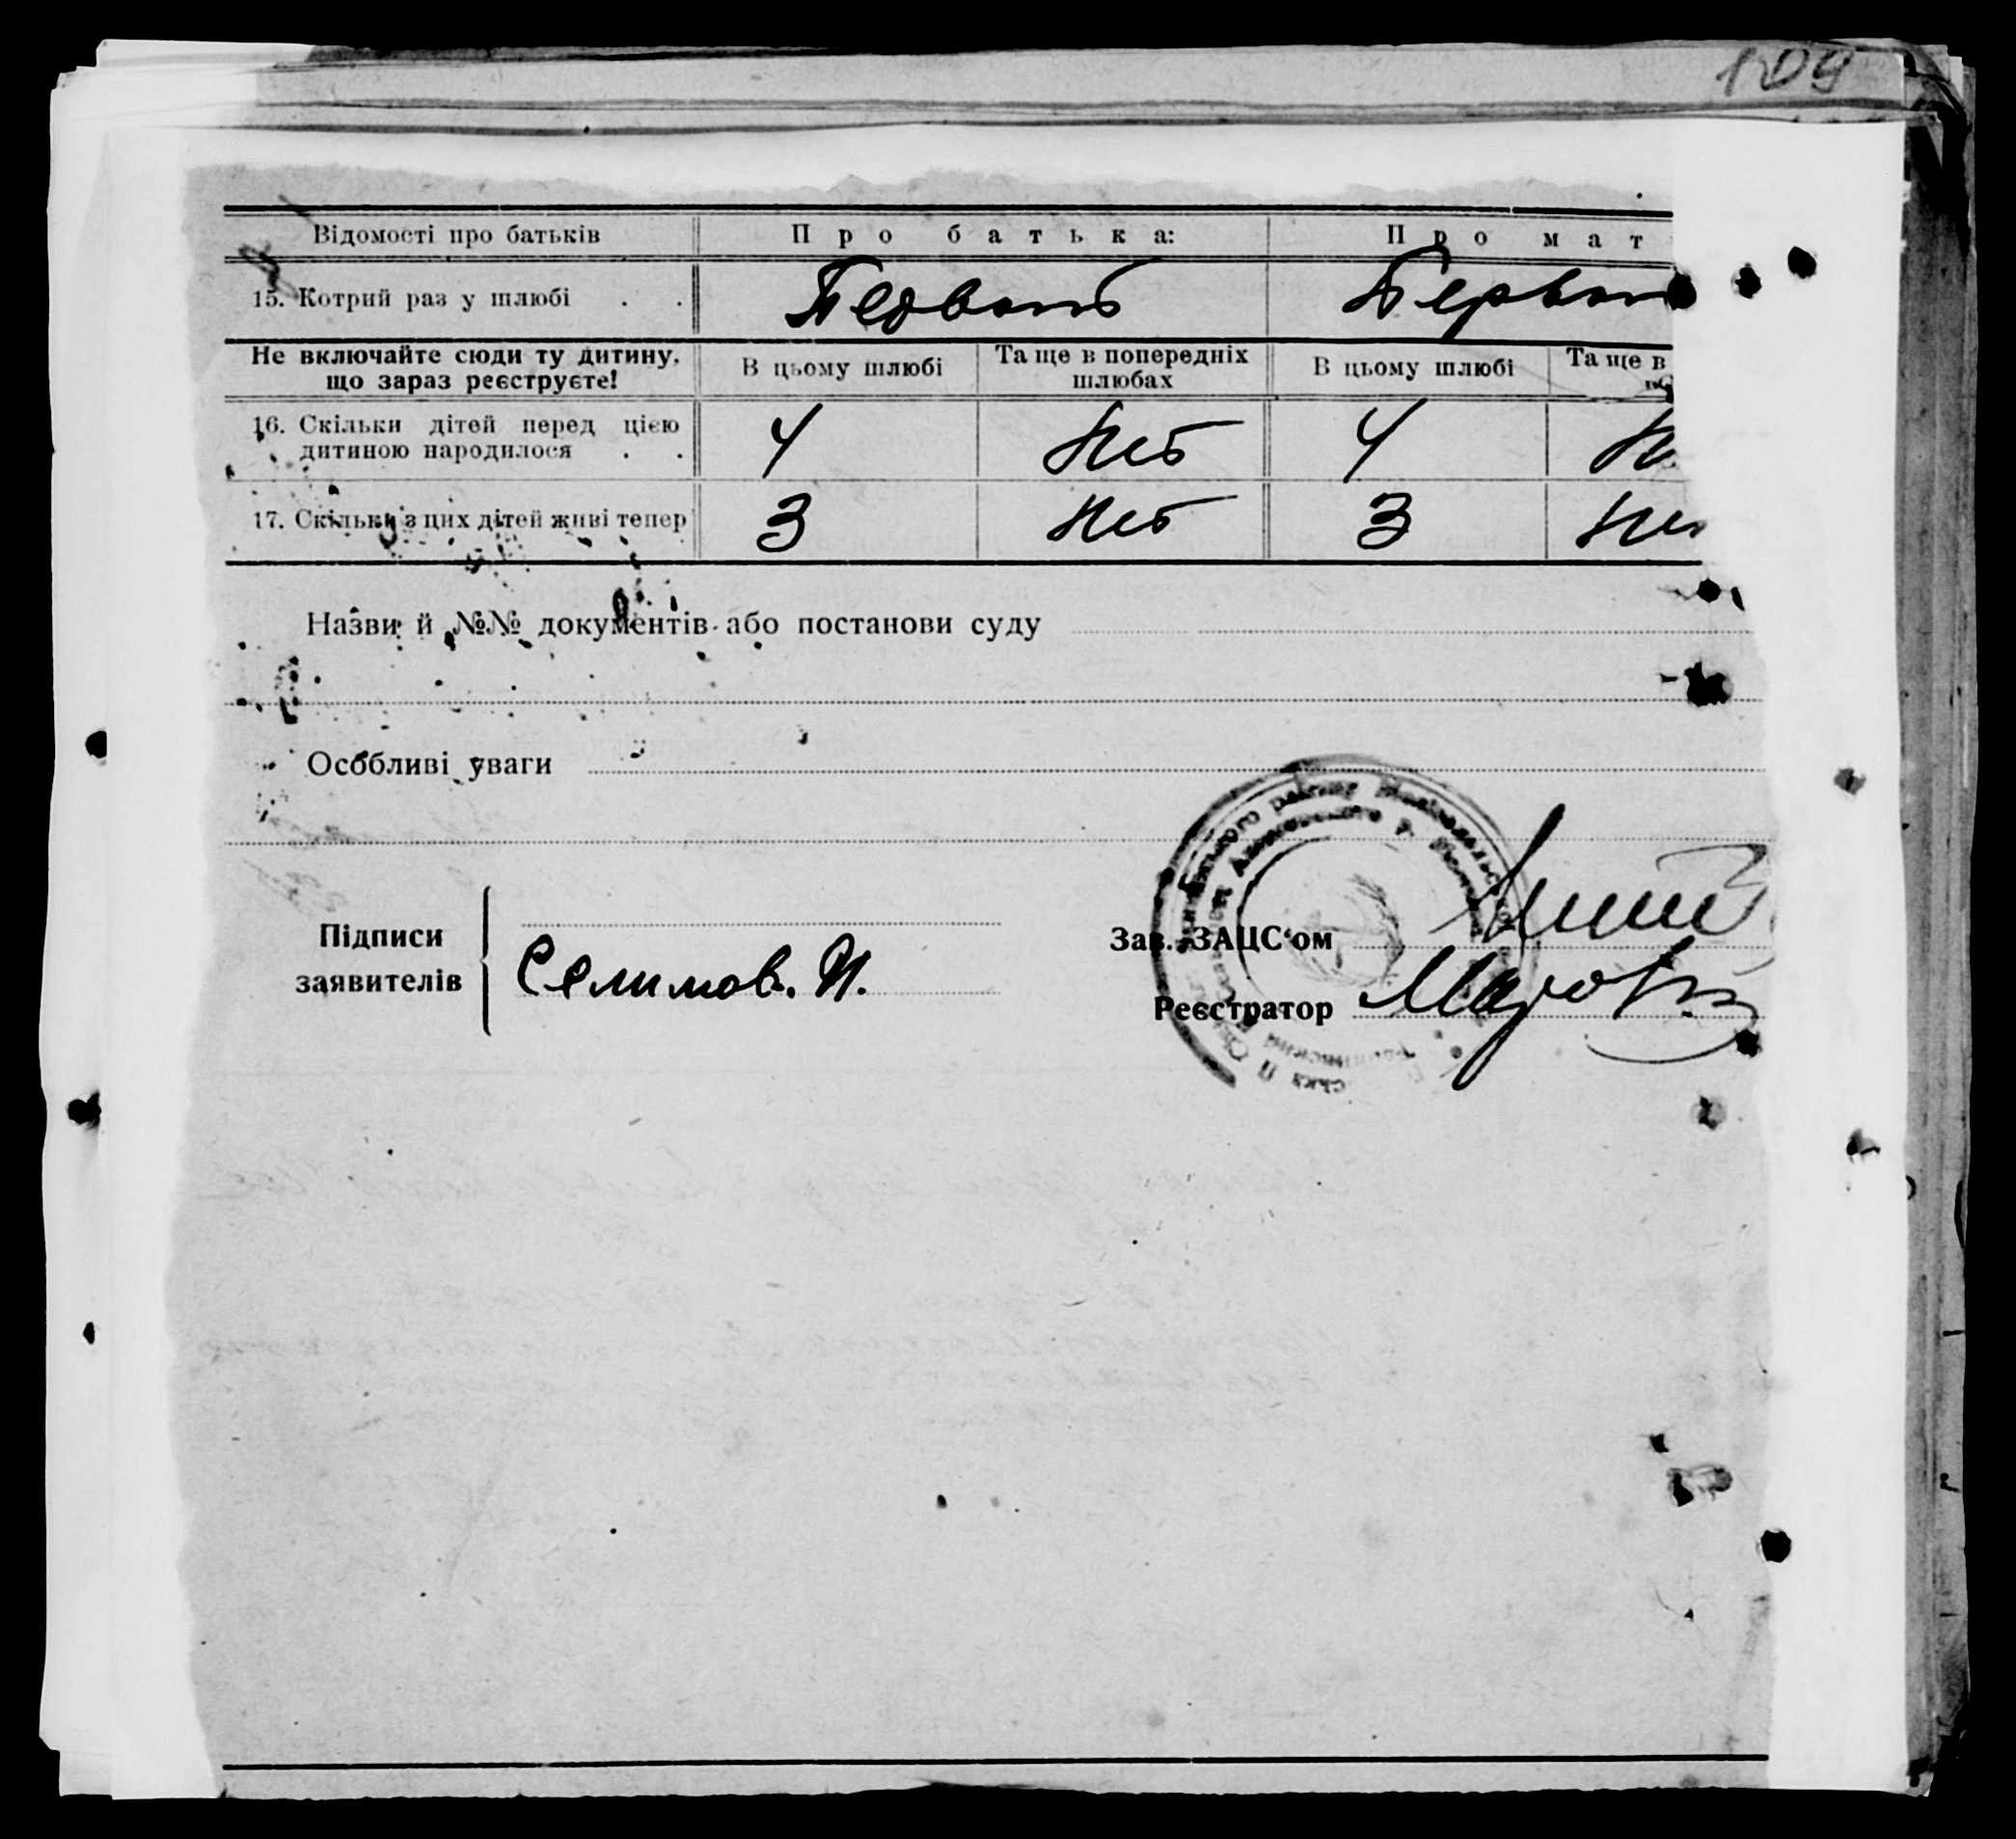 109
Відомості про батьків Про батька: Про мат
15. Котрий раз у шлюбі . . Первый Первы
Не включайте сюди ту дитину, що зараз реєструєте! В цьому шлюбі Та ще в попередніх шлюбах В цьому шлюбі Та ще в
16. Скільки дітей перед цією дитиною народилося . . 4 Нет 4 Н
17. Скільки з цих дітей живі тепер 3 Нет 3 Не
Назви й №№ документів або постанови суду
Особливі уваги
Підписи заявителів
Селимов. И.
Зав. ЗАЦС'ом
Реєстратор